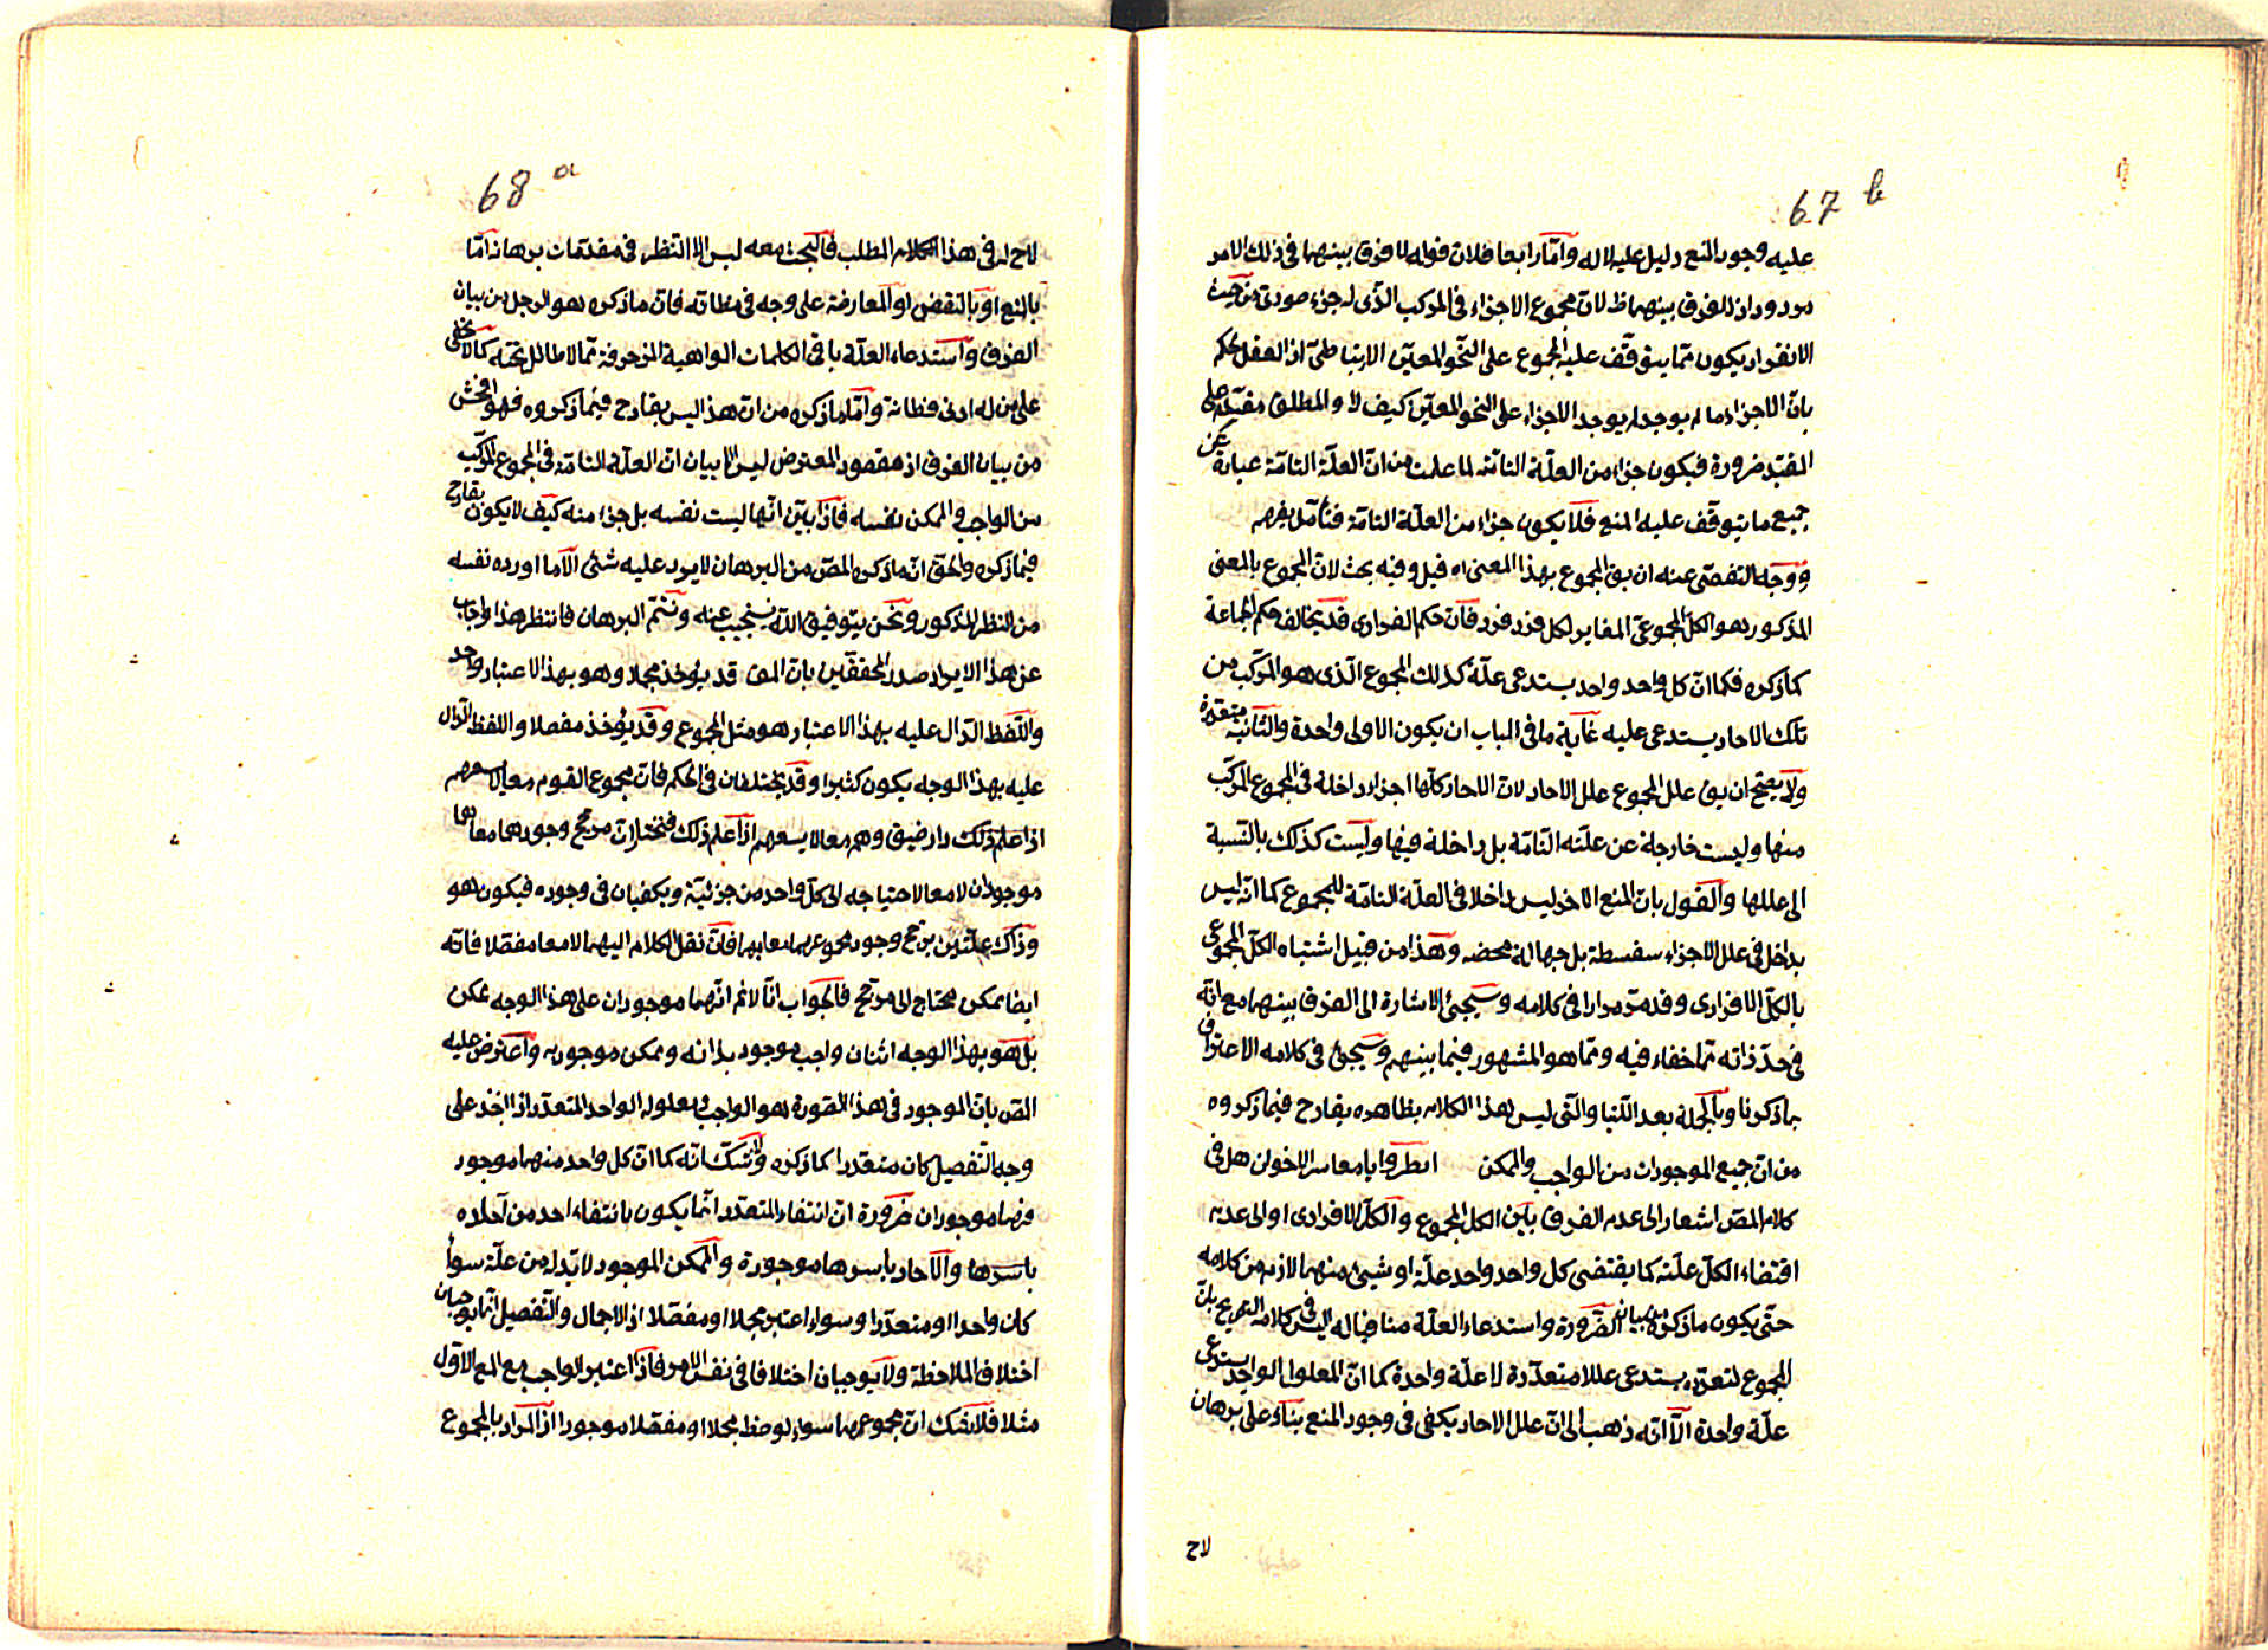 67 b
عليه وجود المنع دليل عليه لا له وامّا رابعا فلان قوله لا فرق بينهما فى ذلك الامر
مردود اذ الفرق بينهما ظ لان مجموع الاجزاء فى المركب الذى له جزء صورى من حيث
الانفراد يكون ممّا يتوقّف عليه المجموع على النّحو المعيّن الارتباطىّ اذ العقل يحكم
بانّ الاجزاء ما لم يوجد لم يوجد الاجزاء على النحو المعيّن كيف لا والمطلق مقدّم على
المقيّد ضرورة فيكون جزء من العلّة التامّة لما علمت من انّ العلّة التامّة عبارة عن
جميع ما يتوقّف عليه المنع فلا يكون جزء من العلّة التامّة فتأمّل يفهم
ووجه التفصّى عنه ان يق المجموع بهذا المعنى اه قيل وفيه بحث لانّ المجموع بالمعنى
المذكور هو الكلّ المجموعىّ المغاير لكل فرد فرد فانّ حكم الفرادى قد يخالف حكم الجماعة
كما ذكره فكما انّ كل واحد واحد يستدعى علّة كذلك المجموع الّذى هو المركّب من
تلك الاحاد يستدعى عليه غاية ما فى الباب ان يكون الاولى واحدة والثّانية متعدّدة
ولا يصحّ ان يق علل المجموع علل الاحاد لانّ الاحاد كلّها اجزاء داخلة فى المجموع المركّب
منها وليست خارجة عن علّته التّامّة بل داخلة فيها وليست كذلك بالنّسبة
الى عللها والقول بانّ المنع الاخر ليس داخلا فى العلّة التامّة للمجموع كما انّه ليس
بداخل فى علل الاجزاء سفسطة بل جهالة محضه وهذا من قبيل اشتباه الكلّ المجموعى
بالكلّ الافرادى وقد مرّ مرارا فى كلامه وسيجئ الاشارة الى الفرق بينهما مع انّه
فى حدّ ذاته ممّا خفاء فيه وممّا هو المشهور فيما بينهم وسيجئ فى كلامه الاعتراف
بما ذكرنا وبالجملة بعد اللّتيا والّتى ليس لهذا الكلام بظاهره بقادح فيما ذكروه
من انّ جميع الموجودات من الواجب والممكن انظروا يا معاشر الاخوان هل فى
كلام المصّ اشعار الى عدم الفرق بين الكلّ المجموع والكلّ الافرادى او الى عدم
اقتضاء الكلّ علّته كما يقتضى كل واحد واحد علّة او شيئ منهما لازم من كلامه
حتّى يكون ما ذكره من بيان الضّرورة واستدعاء العلّة منافيا له اليس فى كلامه التصريح بانّ
المجموع لتعدّده يستدعى عللا متعدّدة لا علّة واحدة كما انّ المعلول الواحد يستدعى
علّة واحدة الّا انّه ذهب الى انّ علل الاحاد يكفى فى وجود المنع بناء على برهان
لاح
68 a
لاح له فى هذا الكلام المطلب فالبحث معه ليس الّا النّظر فى مقدّمات برهانه امّا
بالمنع او بالنقض او المعارضة على وجه فى مظانّه فانّ ما ذكره هو الرجل من بيان
الفرق واستدعاء العلّة باقى الكلمات الواهية المزخرفة ممّا لا طائل تحته كما لا يخفى
على من له ادنى فطانة وامّا ما ذكره من انّ هذا ليس بقادح فيما ذكروه فهو افحش
من بيان الفرق اذ مقصود المعترض ليس الّا بيان انّ العلّة التامّة فى المجموع المركّب
من الواجب والممكن نفسه فاذا بيّن انّها ليست نفسه بل جزء منه كيف لا يكون بقادح
فيما ذكره والحقّ انّ ما ذكره المصّ من البرهان لا يرد عليه شئ الّا ما اورده نفسه
من النظر المذكور ونحن بتوفيق اللّه سنجيب عنه ونتمّم البرهان فانتظر هذا واجاب
عن هذا الايراد صدر المحققّين بانّ المتعدد قد يؤخذ مجملا وهو بهذا الاعتبار واحد
واللّفظ الدّال عليه بهذا الاعتبار هو مثل المجموع وقد يؤخذ مفصلا واللفظ الدّال
عليه بهذا الوجه يكون كثيرا وقد يختلفان فى الحكم فانّ مجموع القوم معا لا يسعهم
اذا علم ذلك دار ضيق وهم معا لا يسعهم اذا علم ذلك فنختار انّ مرجّح وجودهما معا هما
موجودان لا معا لاحتياجه الى كلّ واحد من جزئيّة ويكفيان فى وجوده فيكون هو
وذاك علّتين يرجّح وجود مجموعهما معا بهما فانّ نقل الكلام اليهما لا معا مفصّلا فانّه
ايضا ممكن محتاج الى مرجّح فالجواب انّا لا نم انّهما موجودان على هذا الوجه ممكن
بل هو بهذا الوجه اثنان واجب موجود بذاته وممكن موجود به واعترض عليه
المصّ بانّ الموجود فى هذا الصّورة هو الواجب ومعلوله الواحد المتعدّد اذ اخذ على
وجه التّفصيل كان متعدّدا كما ذكره ولا شكّ انّه كما انّ كل واحد منهما موجود
فهما موجودان ضرورة انّ انتفاء المتعدّد انّما يكون بانتفاء احد من آحاده
باسرها والاحاد باسرها موجودة والممكن الموجود لا بدّ له من علّة سواء
كان واحدا او متعدّدا وسواء اعتبر مجملا او مفصّلا اذ الاجمال والتّفصيل انّما يوجبان
اختلاف الملاحظة ولا يوجبان اختلافا فى نفس الامر فاذا اعتبر الواجب مع المع الاوّل
مثلا فلا يخفك انّ مجموعهما سواء لوحظ مجملا او مفصّلا موجودا اذ المراد بالمجموع